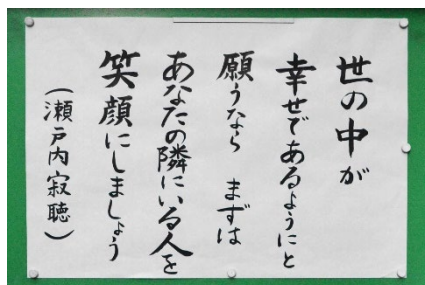 世の中が
幸せであるようにと
願うなら　まずは
あなたの隣にいる人を
笑顔にしましょう
（瀬戸内寂聴）